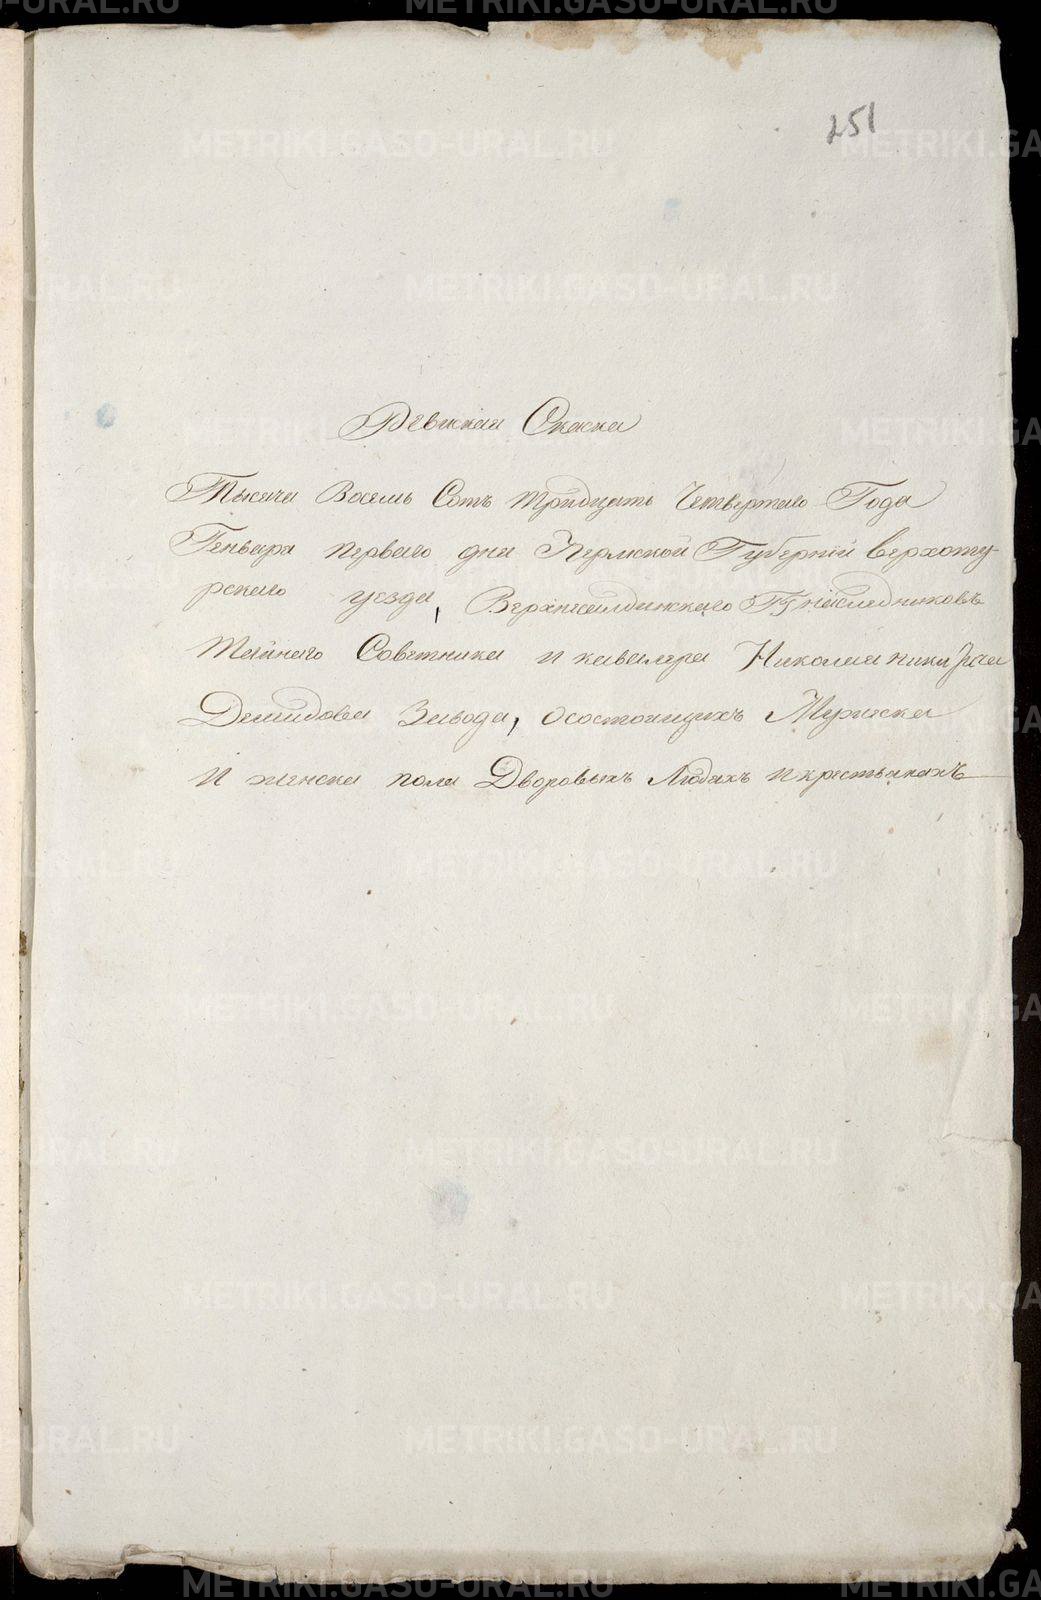 251
Ревиская Скаска
Тысяча Восемь Сотъ тридцать Четвертаго Года
Генваря перваго дня Пермской Губернiи верхоту-
рскаго уезда, Верхнесалдинскаго Гг наследниковъ
Тайнаго Советника и кавалера Николая
Демидова Завода, осостоящихъ Мужеска
и женска пола Дворовыхъ Людяхъ и крестьянахъ
METRIKI.GASO-URAL.RU